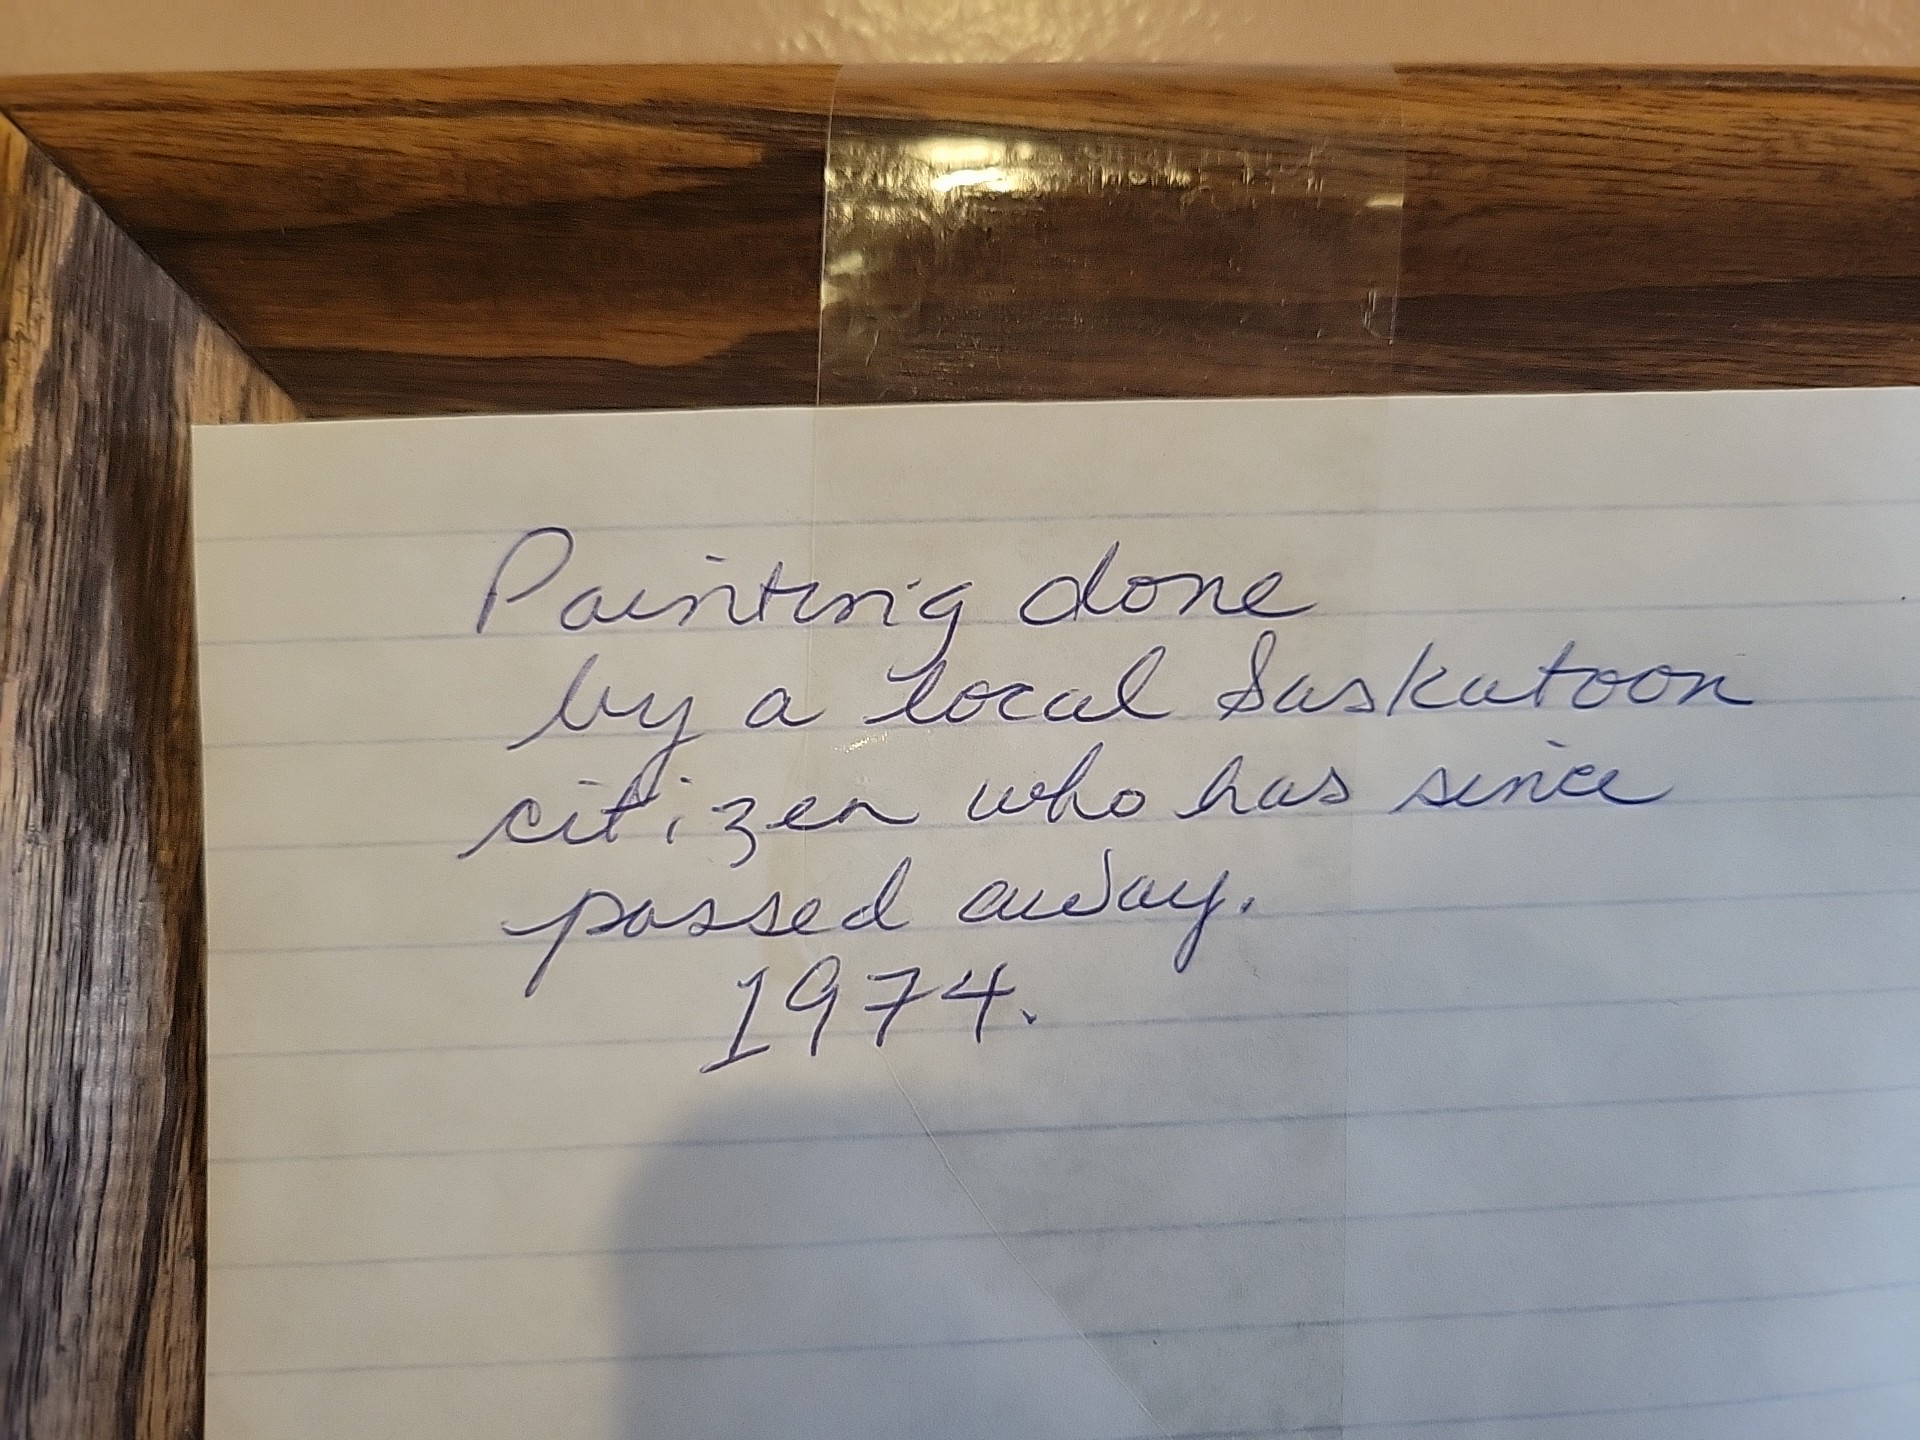 Painting done
by a local Saskatoon
citizen who has since
passed away.
1974.